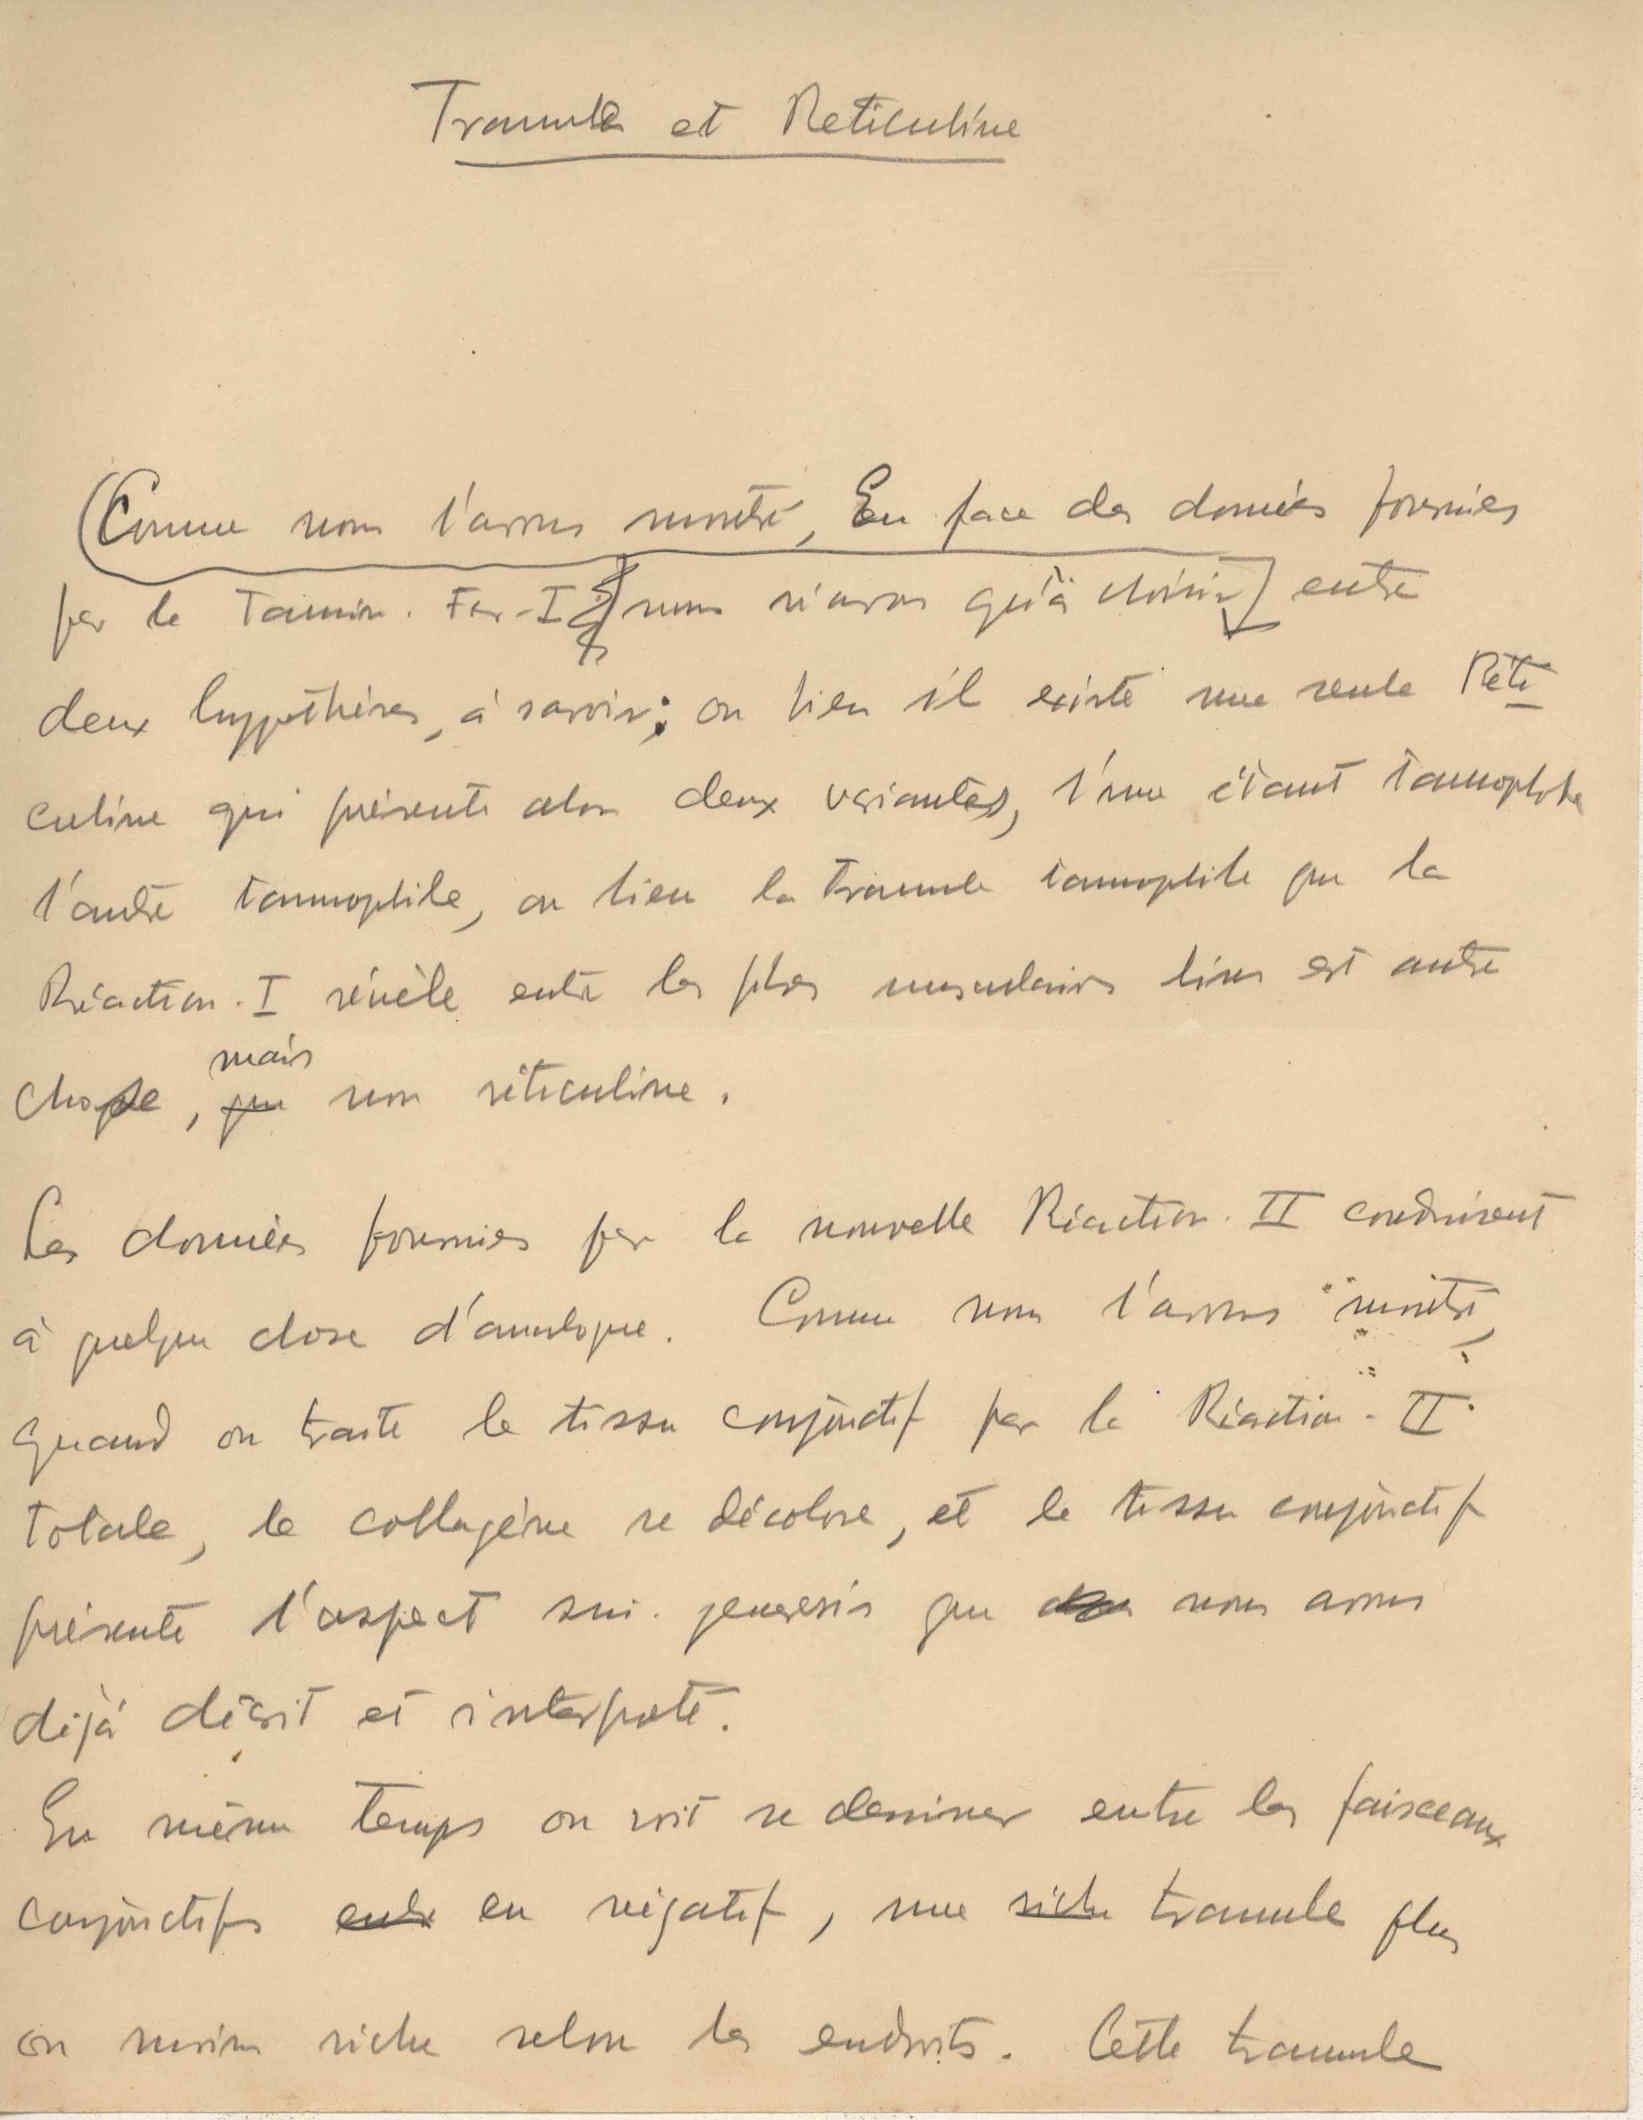 Tramule et Reticuline
(Comme nous l'avons montré, En face des données fournies
par le Tannin-Fer-I nous n'avons qu'à choisir entre
deux hyppothèses, à savoir; ou bien il existe une seule Réti
culine qui présente alors deux variantes, l'une étant tannophobe
l'autre tannophile, ou bien la tramule tannophile que la
Réaction-I révèle entre les fibres musculaires lisses est autre
chose, que mais non réticuline.
Les données fournies par la nouvelle Réaction-II conduisent
à quelque chose d'analogue. Comme nous l'avons montré,
quand on traite le tissu conjonctif par la Réaction-II
totale, le collagène se décolore, et le tissu conjonctif
présente l'aspect sui-generis que nous avons
déjà décrit et interpreté.
En même temps on voit se dessiner entre les faisceaux
conjonctifs entre en négatif, une riche tramule plus
ou moins riche selon les endroits. Cette tramule